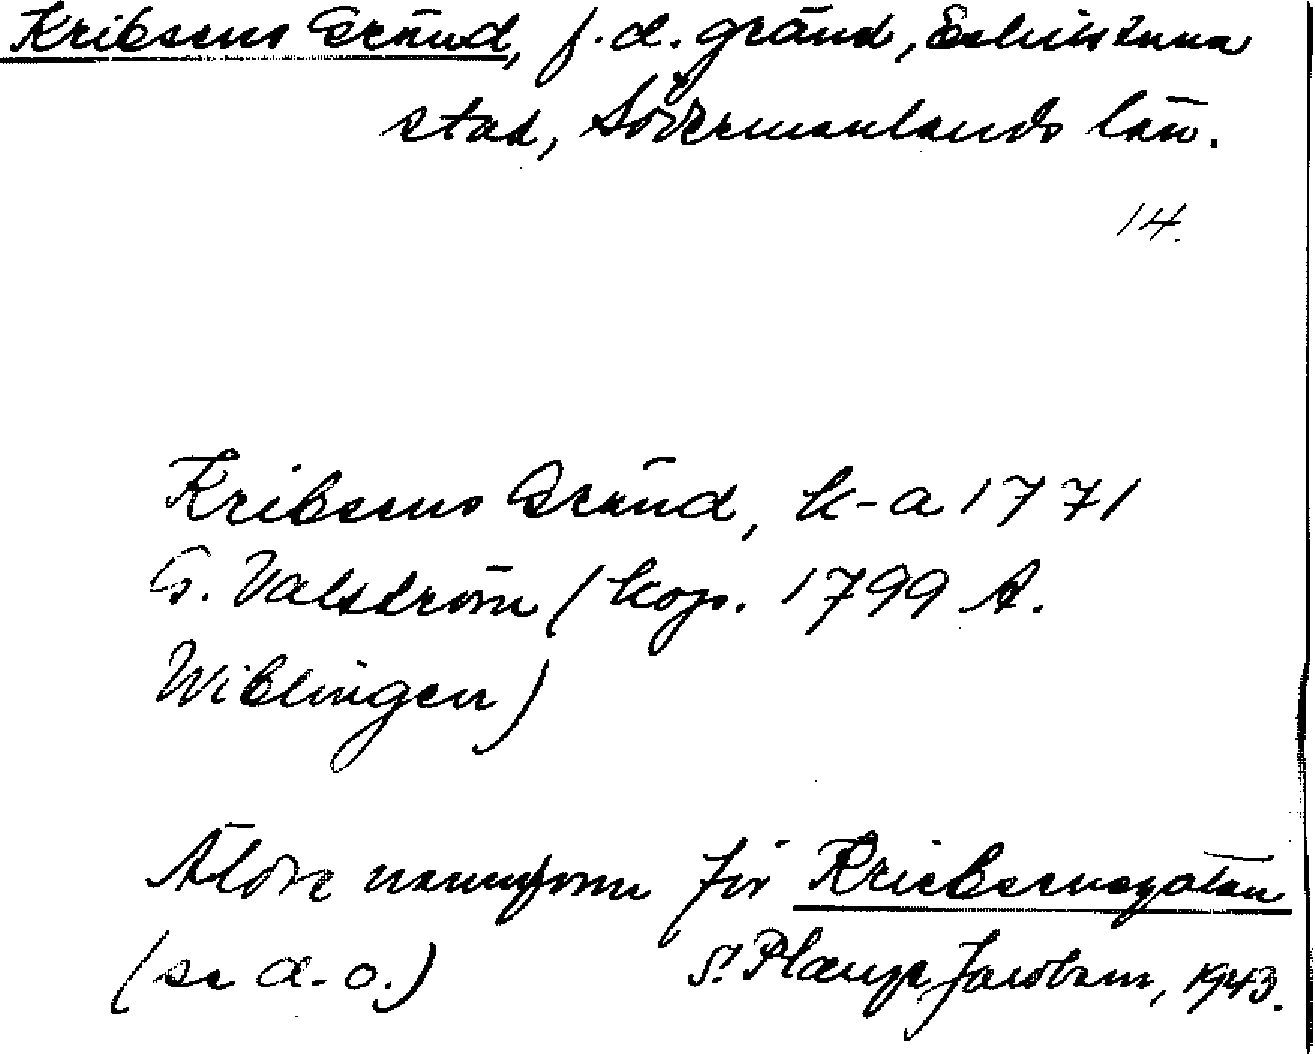 Kribsens Gränd, f.d. gränd, Eskilstuna
stad, Södermanlands län.
14.
Kribsens Gränd, k-a 1771
G. Valström (kop. 1799 A.
Wiblingen)
Äldre namnform för Kriebsensgatan
(se d.o.) S. Plauye Jacobsen, 1943.